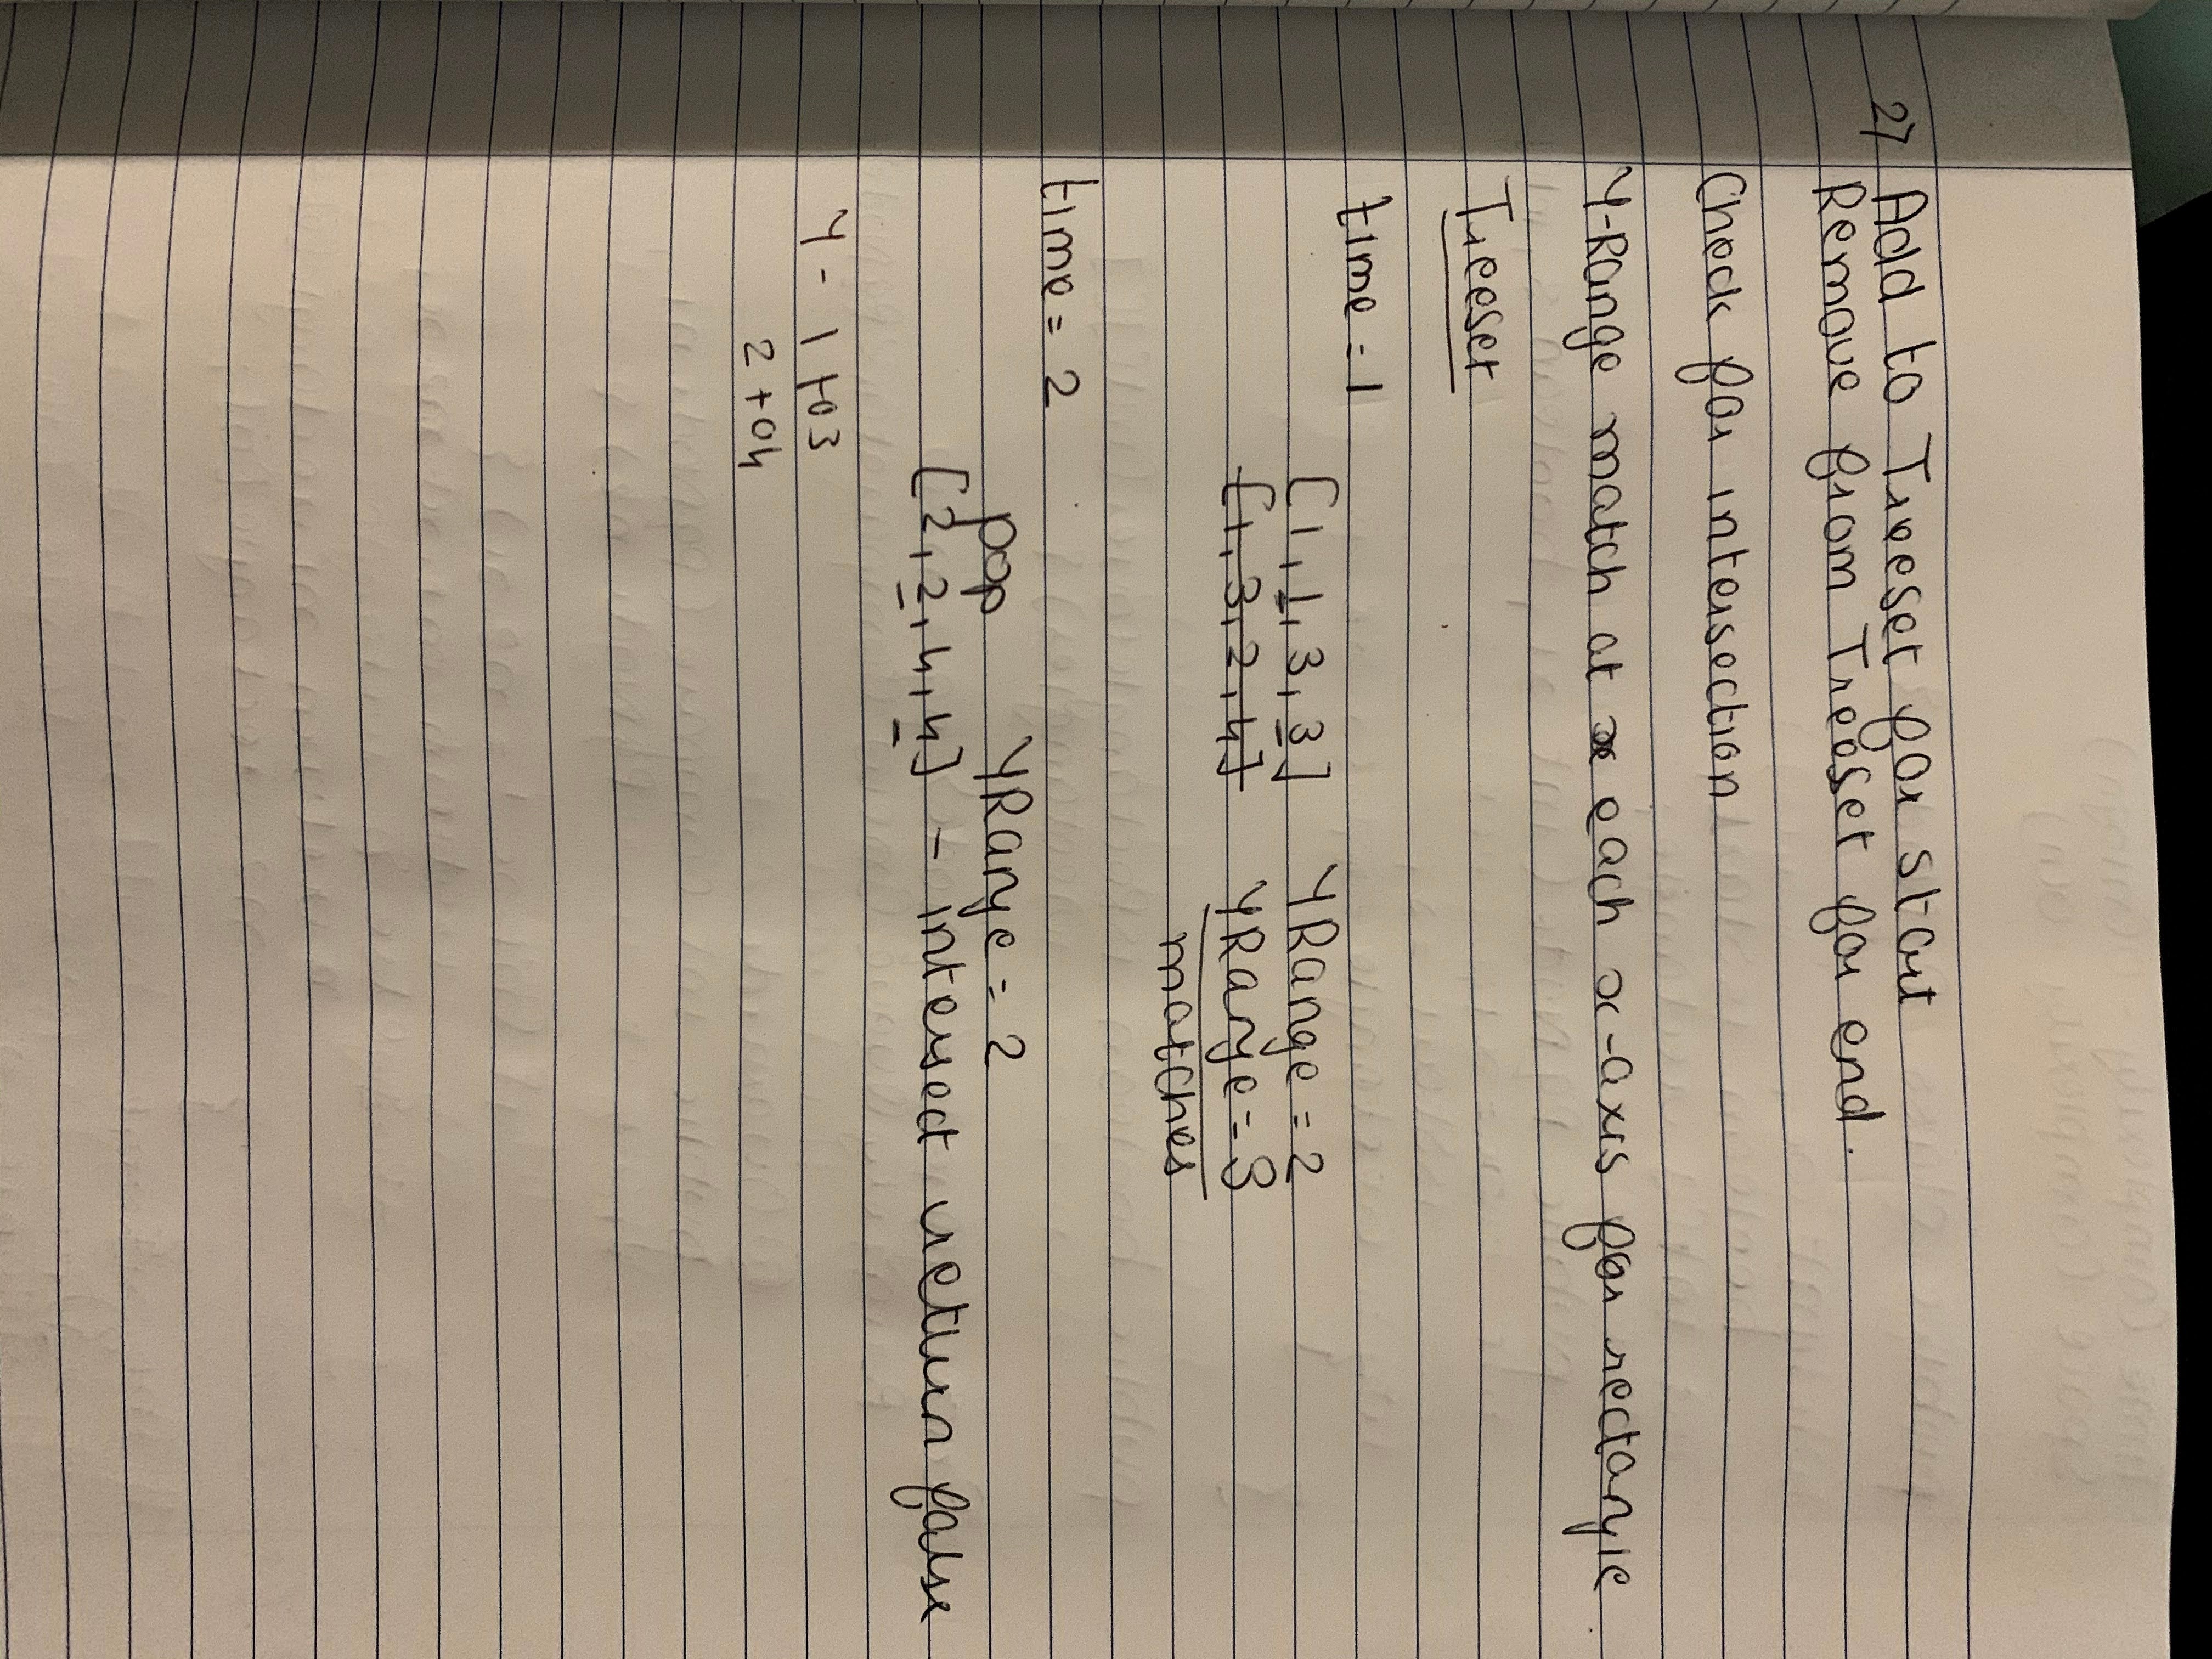 2) Add to Treeset for start
Remove from Treeset for end.
Check for intersection
Y-Range match at each x-axis for rectangle.
Treeset
time = 1
[1, 1, 3, 3] YRange = 2
[1, 3, 2, 4] YRange = 3
matches
time = 2
pop YRange = 2
[2, 2, 4, 4] - intersect return false
Y - 1 to 3
2 to 4